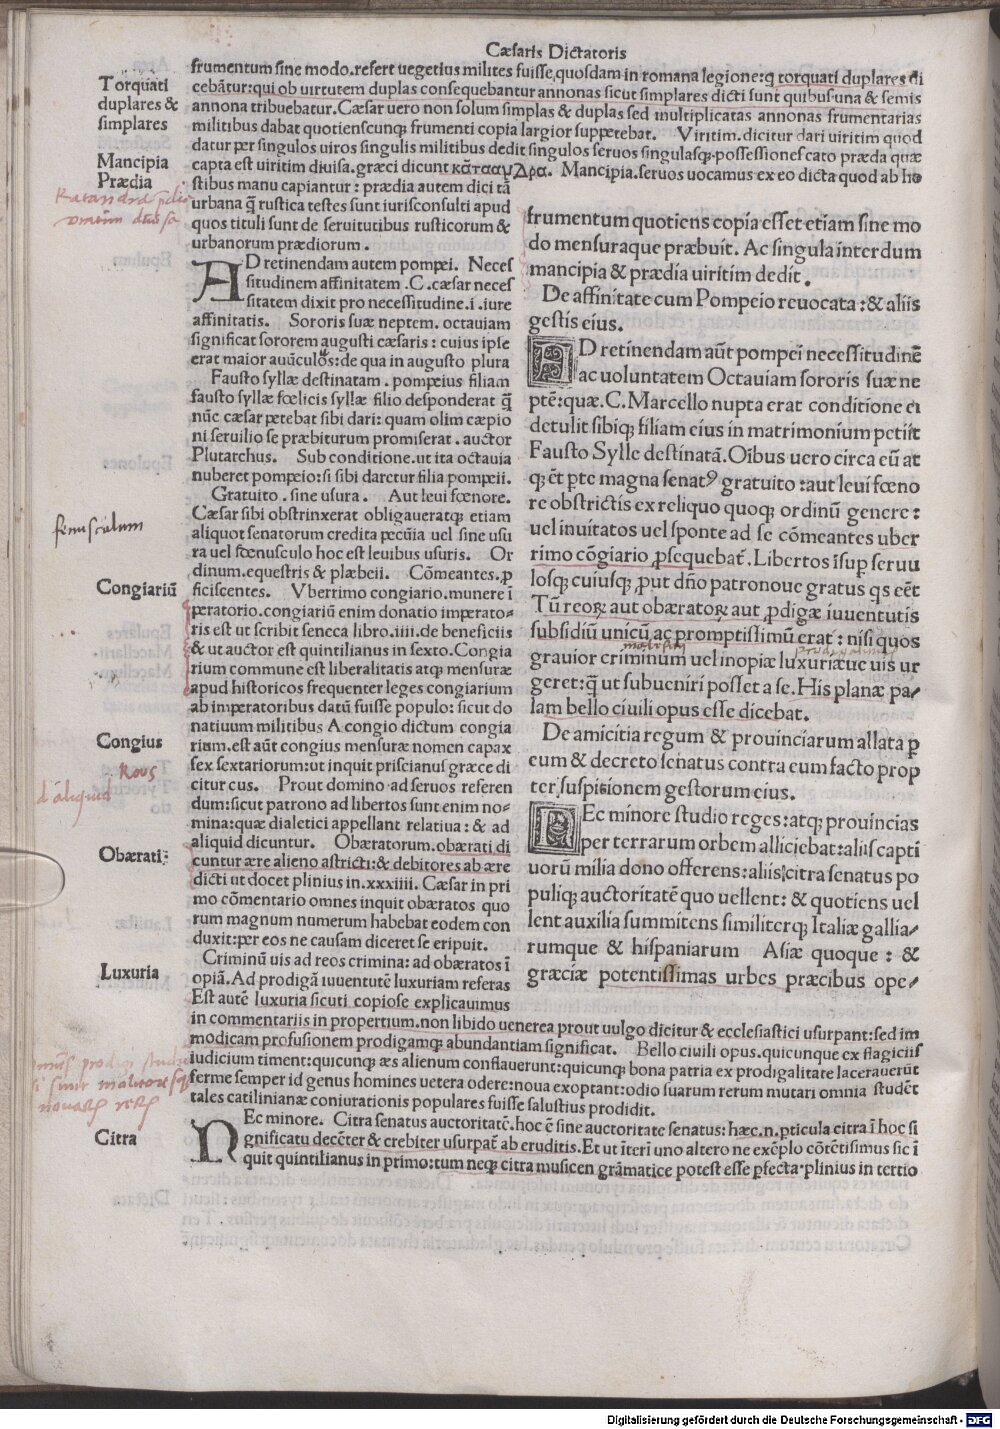 Cæsaris Dictatoris
frumentum sine modo. refert uegetius milites fuisse quosdam in romana legione: q̃ torquati duplares di
cebãtur: qui ob uirtutem duplas consequebantur annonas sicut simplares dicti sunt quibus una & semis
annona tribuebatur. Cæsar uero non solum simplas & duplas sed multiplicatas annonas frumentarias
militibus dabat quotienscunq; frumenti copia largior suppetebat. Viritim. dicitur dari uiritim quod
datur per singulos uiros singulis militibus dedit singulos seruos singulasq; possessiones cato præda quæ
capta est uiritim diuisa. græci dicunt κᾶτααν Δρα. Mancipia. seruos uocamus ex eo dicta quod ab ho
stibus manu capiantur: prædia autem dici tã
urbana q̃ rustica testes sunt iurisconsulti apud
quos tituli sunt de seruitutibus rusticorum &
urbanorum prædiorum.
AD retinendam autem pompei. Neces
situdinem affinitatem. C. cæsar neces
sitatem dixit pro necessitudine. i. iure
affinitatis. Sororis suæ neptem. octauiam
significat sororem augusti cæsaris: cuius ipse
erat maior auũculos: de qua in augusto plura
Fausto syllæ destinatam. pompeius filiam
fausto syllæ fœlicis syllæ filio desponderat q̃
nũc cæsar petebat sibi dari: quam olim cæpio
ni seruilio se præbiturum promiserat. auctor
Plutarchus. Sub conditione. ut ita octauia
nuberet pompeio: si sibi daretur filia pompeii.
Gratuito. sine usura. Aut leui fœnore.
Cæsar sibi obstrinxerat obligaueratq; etiam
aliquot senatorum credita pecũia uel sine usu
ra uel fœnusculo hoc est leuibus usuris. Or
dinum. equestris & plæbeii. Cõmeantes. ꝓ
ficiscentes. Vberrimo congiario. munere ĩ
peratorio. congiariũ enim donatio imperato-
ris est ut scribit seneca libro. iiii. de beneficiis
& ut auctor est quintilianus in sexto. Congia
rium commune est liberalitatis atq; mensuræ
apud historicos frequenter leges congiarium
ab imperatoribus datũ fuisse populo: sicut do
natiuum militibus A congio dictum congia
rium. est aũt congius mensuræ nomen capax
sex sextariorum: ut inquit priscianus græce di
citur cus. Prout domino ad seruos referen
dum: sicut patrono ad libertos sunt enim no-
mina: quæ dialetici appellant relatiua: & ad
aliquid dicuntur. Obæratorum. obærati di
cuntur ære alieno astricti: & debitores ab ære
dicti ut docet plinius in. xxxiiii. Cæsar in pri
mo cõmentario omnes inquit obæratos quo
rum magnum numerum habebat eodem con
duxit: per eos ne causam diceret se eripuit.
Criminũ uis ad reos crimina: ad obæratos ĩ
opiã. Ad prodigã iuuentutẽ luxuriam referas
Est autẽ luxuria sicuti copiose explicauimus
frumentum quotiens copia esset etiam sine mo
do mensuraque præbuit. Ac singula interdum
mancipia & prædia uiritim dedit.
De affinitate cum Pompeio reuocata: & aliis
gestis eius.
AD retinendam aũt pompei necessitudinẽ
ac uoluntatem Octauiam sororis suæ ne
ptẽ: quæ. C. Marcello nupta erat conditione ei
detulit sibiq; filiam eius in matrimonium petiit
Fausto Sylle destinatã. Oĩbus uero circa eũ at
q; ẽt ꝑte magna senatꝰ gratuito: aut leui fœno
re obstrictis ex reliquo quoq; ordinũ genere:
uel inuitatos uel sponte ad se cõmeantes uber
rimo cõgiario ꝓsequebat̃. Libertos ĩsuꝑ seruu
losq; cuiusq; ꝓut dño patronoue gratus qs eẽt
Tũ reoꝝ aut obæratoꝝ aut ꝓdigæ iuuentutis
subsidiũ unicũ ac promptissimũ erat: nisi quos
grauior criminum uel inopiæ luxuriæue uis ur
geret: q̃ ut subueniri posset a se. His planæ pa-
lam bello ciuili opus esse dicebat.
De amicitia regum & prouinciarum allata ꝑ
eum & decreto senatus contra eum facto prop
ter suspitionem gestorum eius.
NEc minore studio reges: atq; prouincias
per terrarum orbem alliciebat: aliis capti
uorũ milia dono offerens: aliis citra senatus po
puliq; auctoritatẽ quo uellent: & quotiens uel
lent auxilia summitens similiterq; Italiæ gallia-
rumque & hispaniarum Asiæ quoque: &
græciæ potentissimas urbes præcibus ope-
in commentariis in propertium. non libido uenerea prout uulgo dicitur & ecclesiastici usurpant: sed im
modicam profusionem prodigamq; abundantiam significat. Bello ciuili opus. quicunque ex flagiciis
iudicium timent: quicunq; æs alienum conflauerunt: quicunq; bona patria ex prodigalitate lacerauerũt
ferme semper id genus homines uetera odere: noua exoptant: odio suarum rerum mutari omnia studẽt
tales catilinianæ coniurationis populares fuisse salustius prodidit.
NEc minore. Citra senatus auctoritatẽ. hoc ẽ sine auctoritate senatus: hæc. n. ꝑticula citra ĩ hoc si
gnificatu decẽter & crebiter usurpat̃ ab eruditis. Et ut iterũ uno altero ne exẽplo cõtẽtissimus sic ĩ
quit quintilianus in primo: tum neq; citra musicen grãmatice potest esse ꝑfecta. plinius in tertio
Torquati
duplares &
simplares
Mancipia
Prædia
fenusculum
Congiariũ
Congius
κους
d aliquid
Obærati
Luxuria
Citra
Digitalisierung gefördert durch die Deutsche Forschungsgemeinschaft - DFG